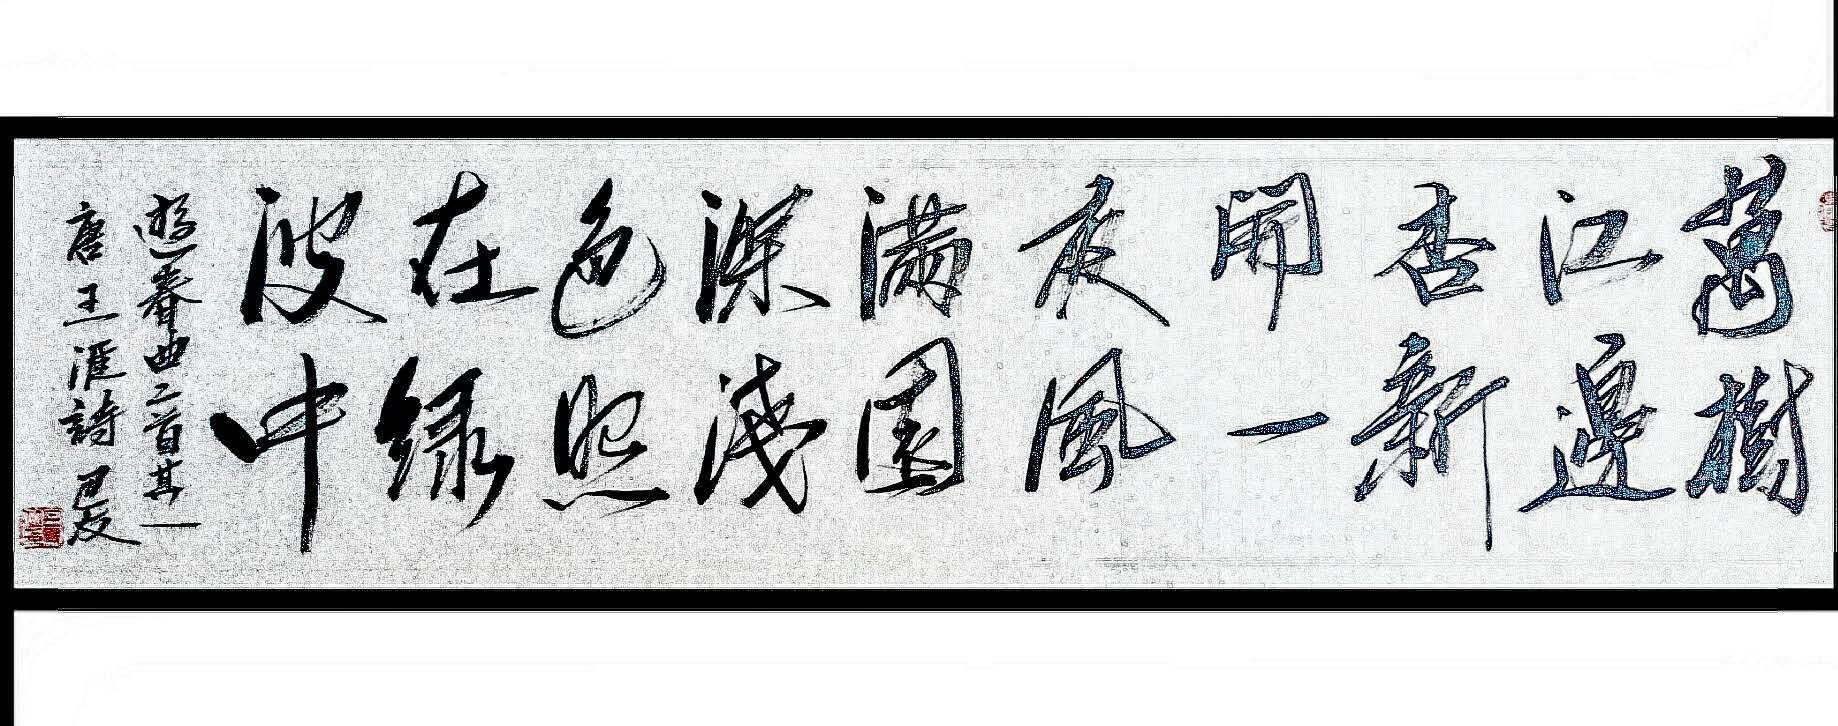 萬樹
江邊
杏新
開一
夜風
滿園
深淺
色照
在綠
波中
遊春曲二首其一
唐王涯詩